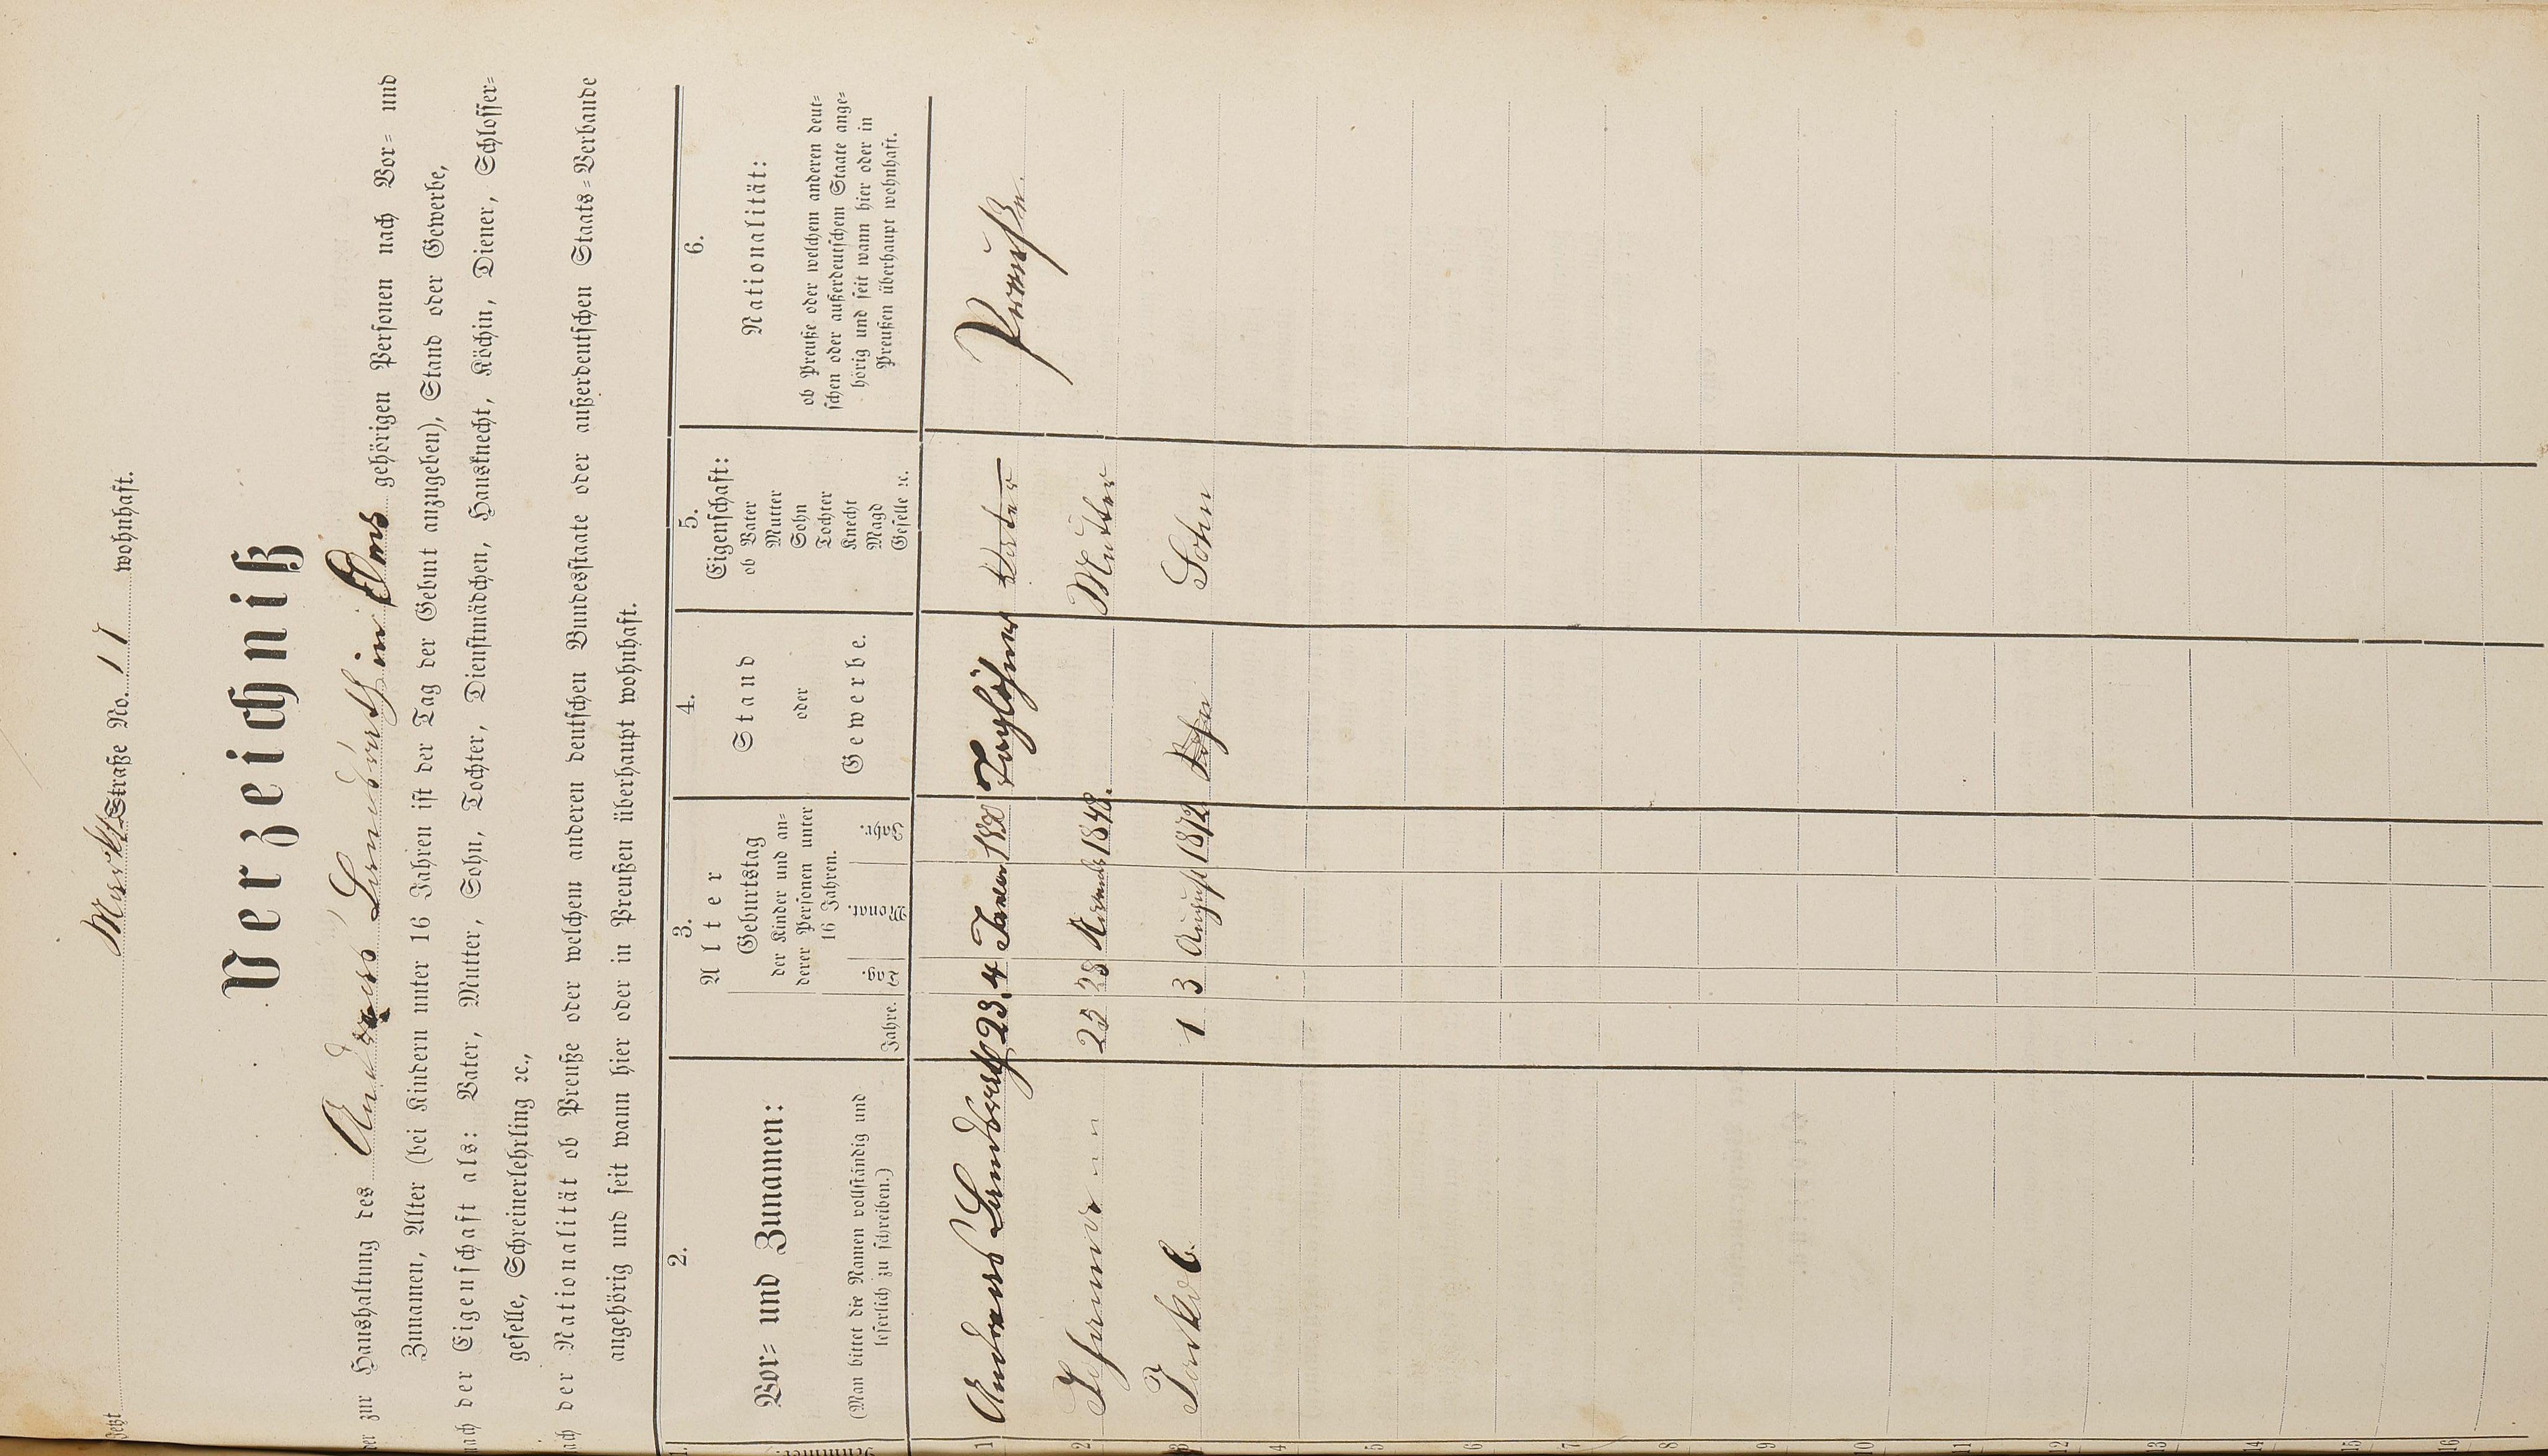 Jetzt Markt Straße No. 17 wohnhaft.
Verzeichniß
der zur Haushaltung des Andreas in Ems gehörigen Personen nach Vor- und
Zunamen, Alter (bei Kindern unter 16 Jahren ist der Tag der Geburt anzugeben), Stand oder Gewerbe,
nach der Eigenschaft als: Vater, Mutter, Sohn, Tochter, Dienstmädchen, Hausknecht, Köchin, Diener, Schlosser-
geselle, Schreinerlehrling ꝛc.,
nach der Nationalität ob Preuße oder welchem anderen deutschen Bundesstaate oder außerdeutschen Staats-Verbande
angehörig und seit wann hier oder in Preußen überhaupt wohnhaft.
1.
Nummer.
2.
Vor- und Zunamen:
(Man bittet die Namen vollständig und
leserlich zu schreiben.)
3.
Alter
Jahre.
Geburtstag
der Kinder und an-
derer Personen unter
16 Jahren.
Tag. Monat. Jahr.
4.
Stand
oder
Gewerbe.
5.
Eigenschaft:
ob Vater
Mutter
Sohn
Tochter
Knecht
Magd
Geselle ꝛc.
6.
Nationalität:
ob Preuße oder welchem anderen deut-
schen oder außerdeutschem Staate ange-
hörig und seit wann hier oder in
Preußen überhaupt wohnhaft.
1 Andreas 23 4 Taglöhner Vater Preuße.
2 25 28 1848. Mutter
3 Jakob 1 3 August 1872 Sohn
4
5
6
7
8
9
10
11
12
13
14
15
16